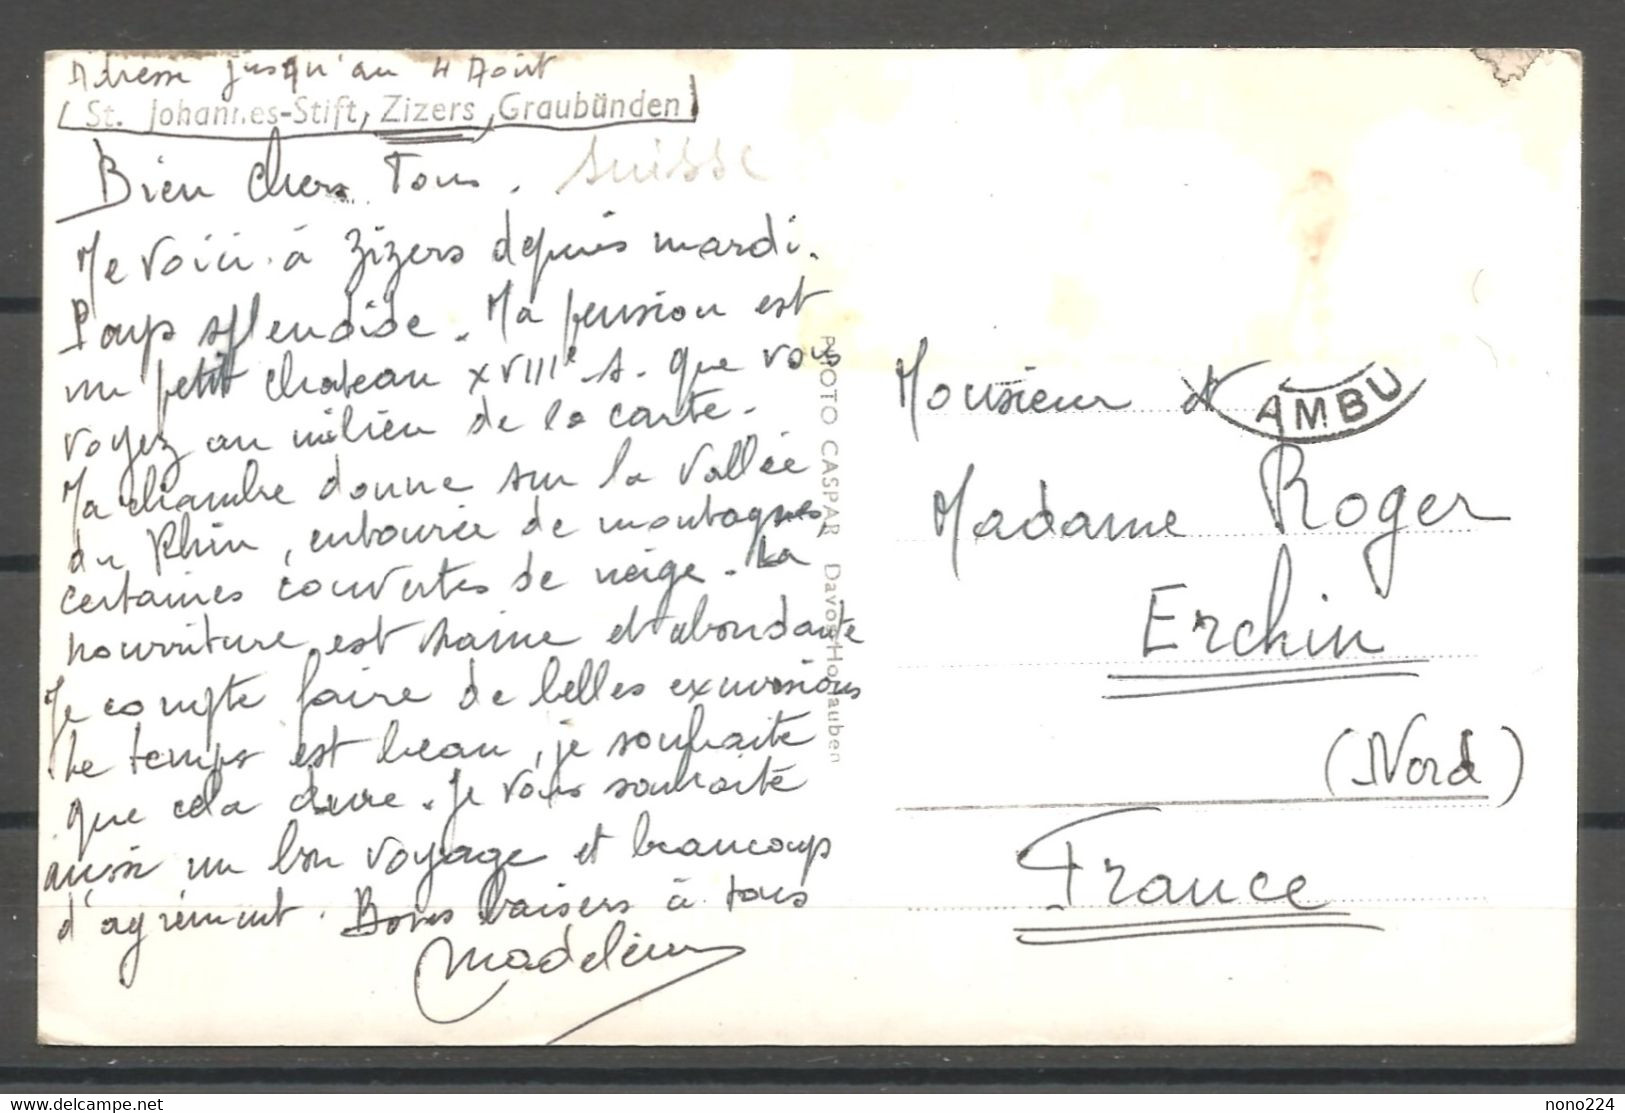 Adresse jusqu'au 4 Aout
St. Johannes-Stift, Zizers, Graubünden
Suisse
Bien Chers Tous.
Me voici à Zizers depuis mardi.
Pays splendide. Ma pension est
un petit chateau XVIIIe s. que vous
voyez au milieu de la carte.
Ma chambre donne sur la vallée
du Rhin, entourée de montagnes
certaines couvertes de neige. La
nourriture est saine et abondante
Je compte faire de belles excursions
Le temps est beau, je souhaite
que cela dure. Je vous souhaite
aussi un bon voyage et beaucoup
d'agrément. Bons baisers à tous
Madeleine
PHOTO CASPAR Davos
AMBU
Monsieur et
Madame Roger
Erchin
(Nord)
France
nono224